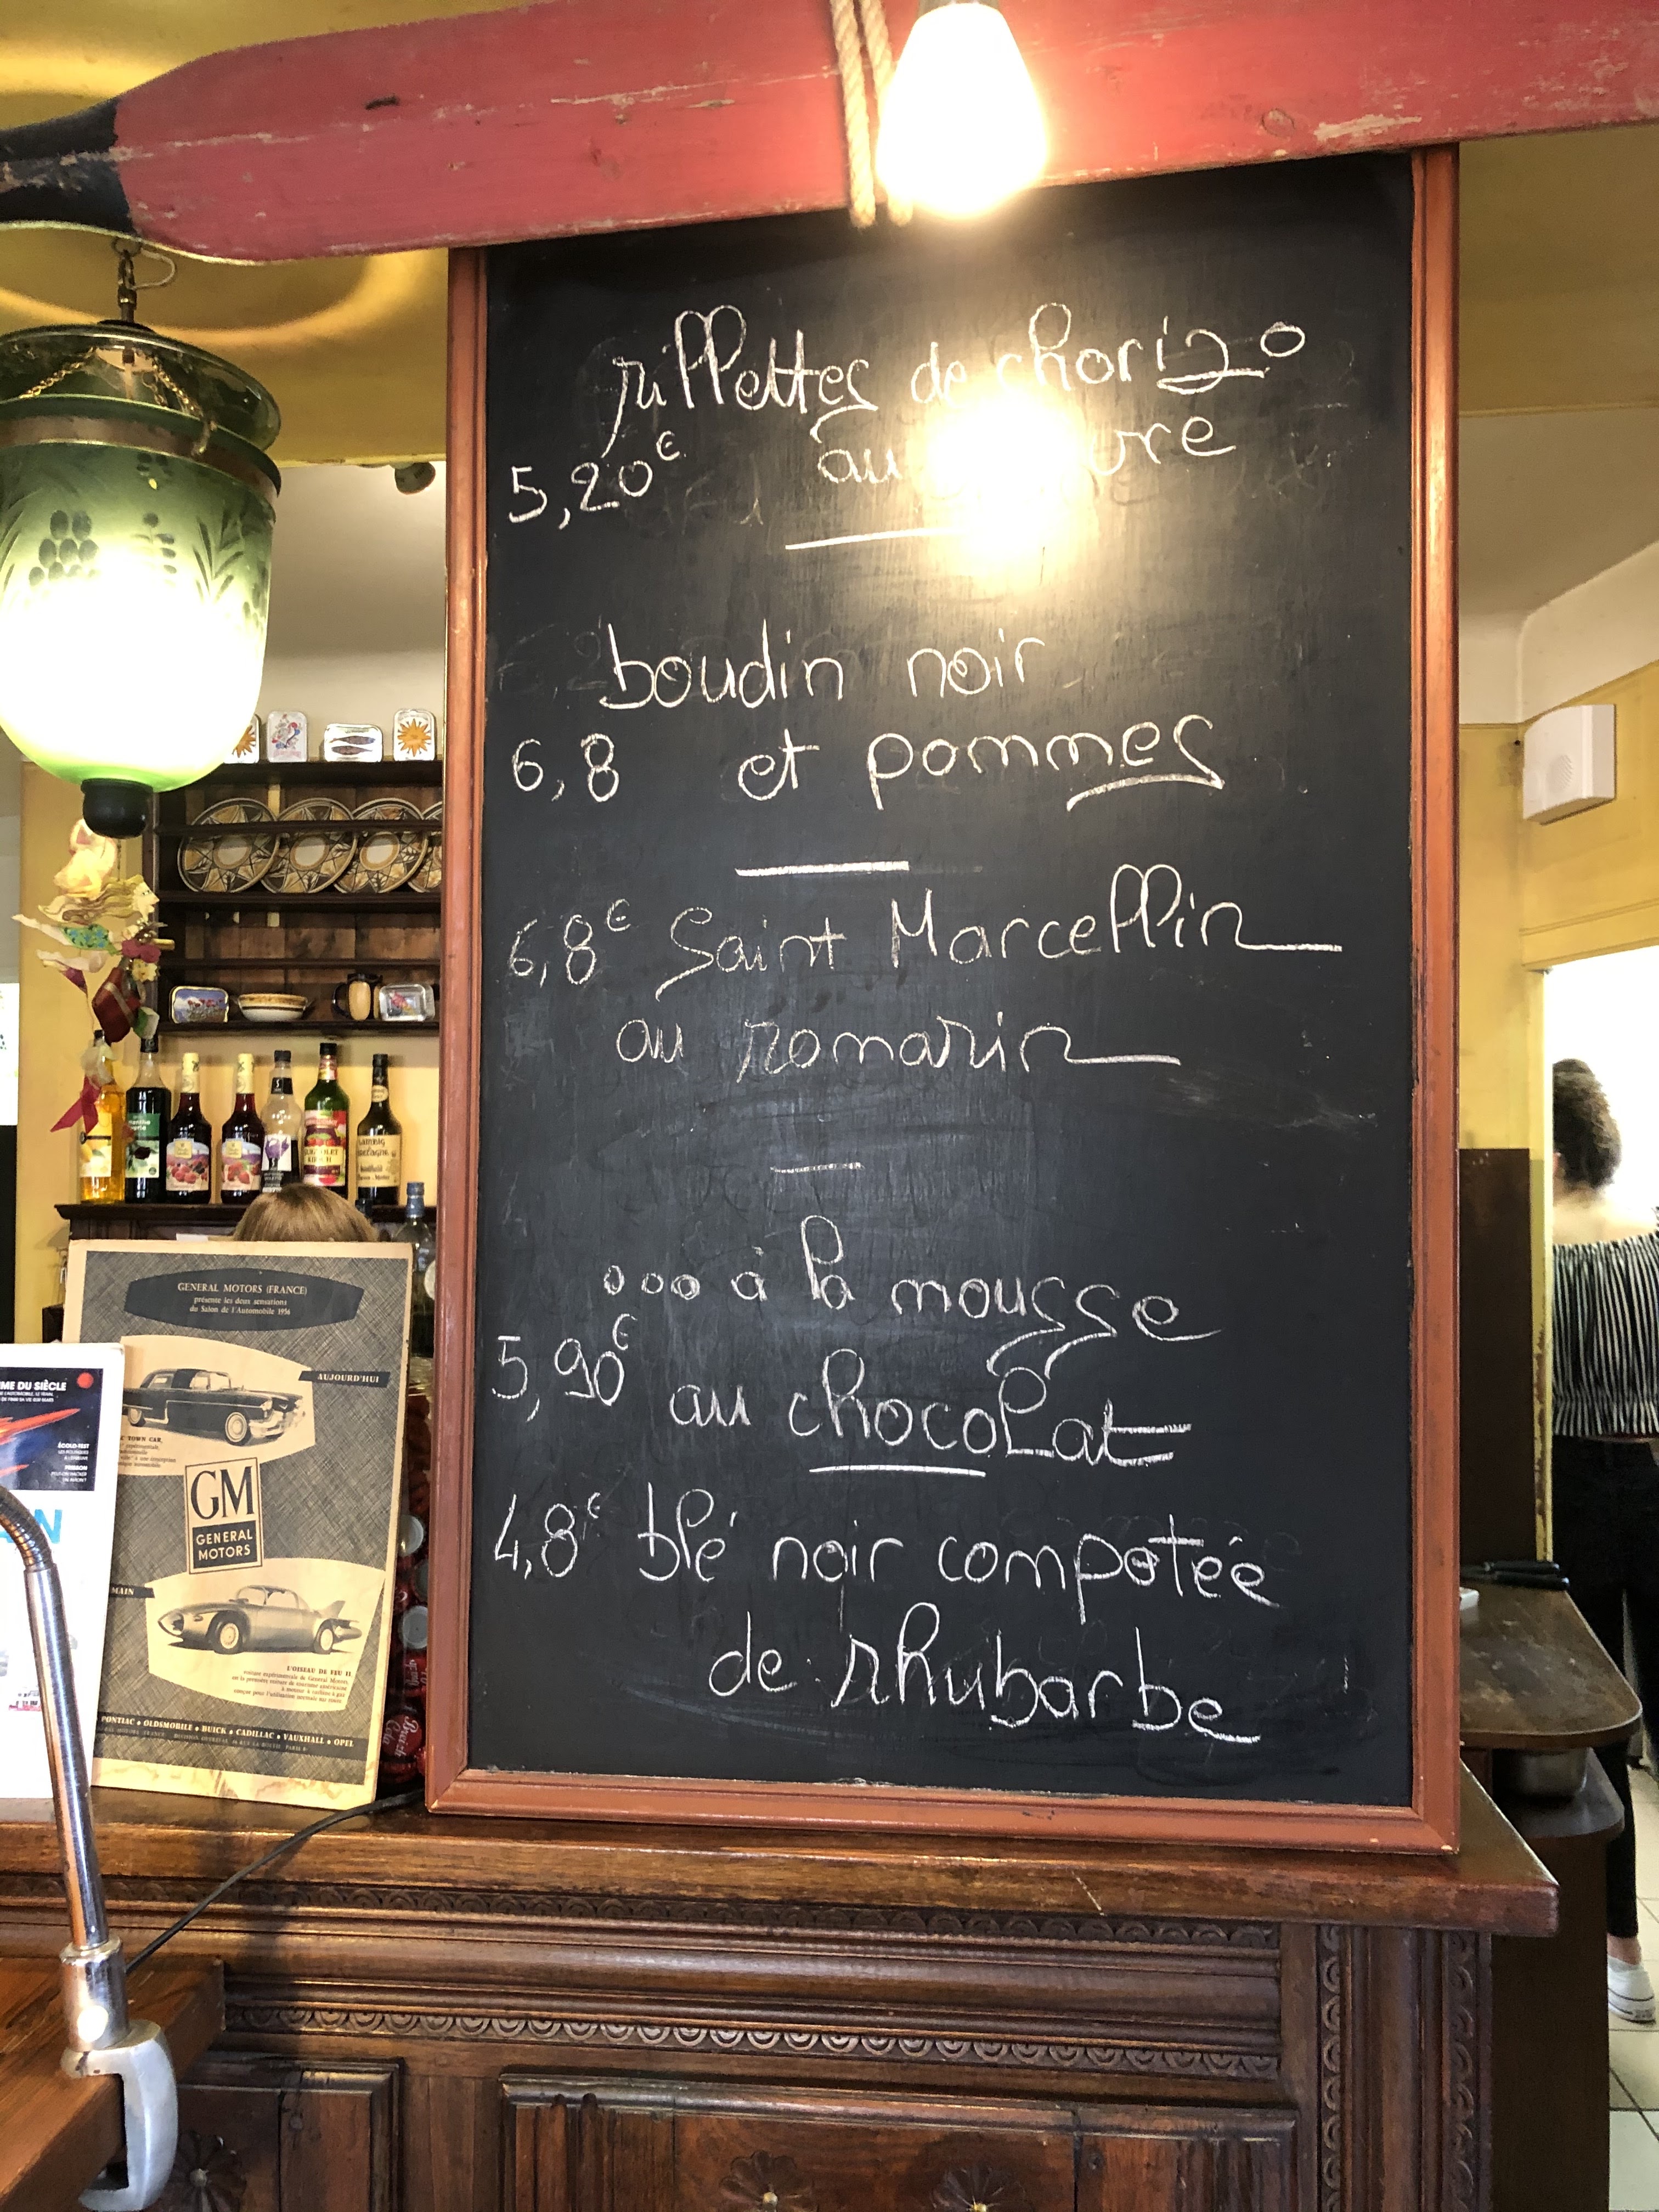 rillettes de chorizo
5,20€ au
boudin noir
6,8 et pommes
6,8€ Saint Marcellin
au romarin
ooo à la mousse
5,90€ au chocolat
4,8€ blé noir compotée
de rhubarbe
GENERAL MOTORS (FRANCE)
présente les deux sensations
du Salon de l'Automobile 1956
AUJOURD'HUI
TOWN CAR,
GM
GENERAL
MOTORS
MAIN
L'OISEAU DE FEU II
PONTIAC • OLDSMOBILE • BUICK • CADILLAC • VAUXHALL • OPEL
ME DU SIÈCLE